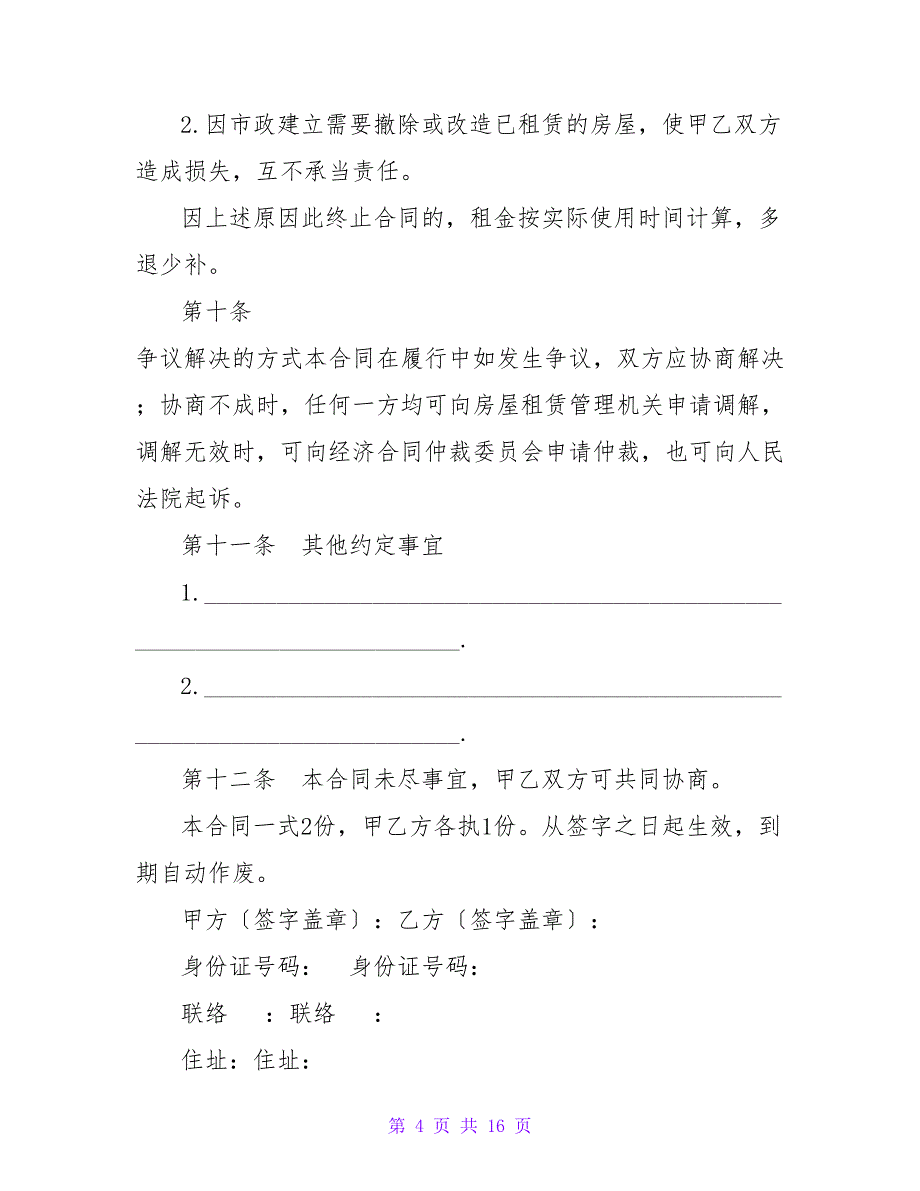 2.因市政建立需要撤除或改造已租赁的房屋，使甲乙双方
造成损失，互不承当责任。
因上述原因此终止合同的，租金按实际使用时间计算，多
退少补。
第十条
争议解决的方式本合同在履行中如发生争议，双方应协商解决
；协商不成时，任何一方均可向房屋租赁管理机关申请调解，
调解无效时，可向经济合同仲裁委员会申请仲裁，也可向人民
法院起诉。
第十一条　其他约定事宜
1.________________________________________________
___________________________.
2.________________________________________________
___________________________.
第十二条　本合同未尽事宜，甲乙双方可共同协商。
本合同一式2份，甲乙方各执1份。从签字之日起生效，到
期自动作废。
甲方〔签字盖章〕：乙方〔签字盖章〕：
身份证号码：　身份证号码：
联络　：联络　：
住址：住址：
第 4 页 共 16 页